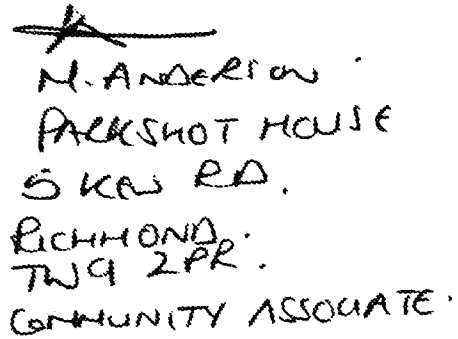 M. ANDERSON
PARKSHOT HOUSE
5 KEW RD.
RICHMOND.
TW9 2PR.
COMMUNITY ASSOCIATE.